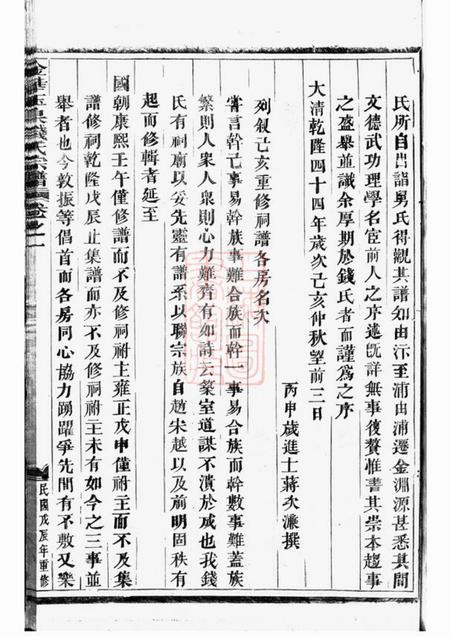 氏所自出詣舅氏得觀其譜知由汴至浦由浦遷金淵源甚悉其間
文德武功理學名宦前人之序述旣詳無事復贅惟書其崇本趨事
之盛舉並識余厚期於錢氏者而謹為之序
大清乾隆四十四年歲次己亥仲秋望前三日
丙申歲進士蔣次濂撰
列叙己亥重修祠譜各房名次
嘗言幹己事易幹族事難合族而幹一事易合族而幹數事難蓋族
繁則人衆人衆則心力難齊有如詩云築室道謀不潰於成也我錢
氏有祠廟以妥先靈有譜系以聯宗族自趙宋越以及前明固秩有
起而修輯者延至
國朝康熙壬午僅修譜而不及修祠祔主雍正戊申僅祔主而不及集
譜修祠乾隆戊辰止集譜而亦不及修祠祔主未有如今之三事並
舉者也今敦振等倡首而各房同心協力踴躍爭先間有不敷又樂
錢氏宗譜
民國戊辰年重修